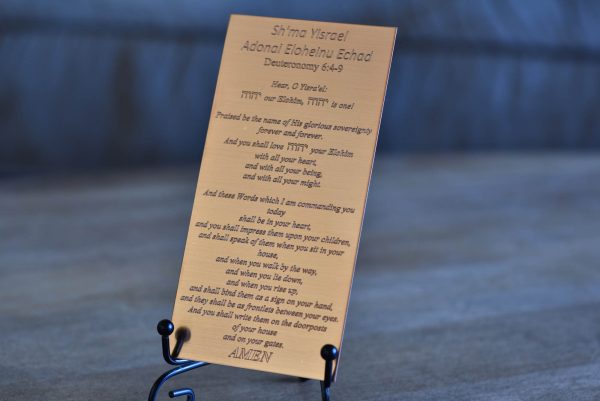 Sh'ma Yisrael
Adonai Eloheinu Echad
Deuteronomy 6:4-9
Hear, O Yisra'el:
יהוה our Elohim, יהוה is one!
Praised be the name of His glorious sovereignty
forever and forever.
And you shall love יהוה your Elohim
with all your heart,
and with all your being,
and with all your might.
And these Words which I am commanding you
today
shall be in your heart,
and you shall impress them upon your children,
and shall speak of them when you sit in your
house,
and when you walk by the way,
and when you lie down,
and when you rise up,
and shall bind them as a sign on your hand,
and they shall be as frontlets between your eyes.
And you shall write them on the doorposts
of your house
and on your gates.
AMEN